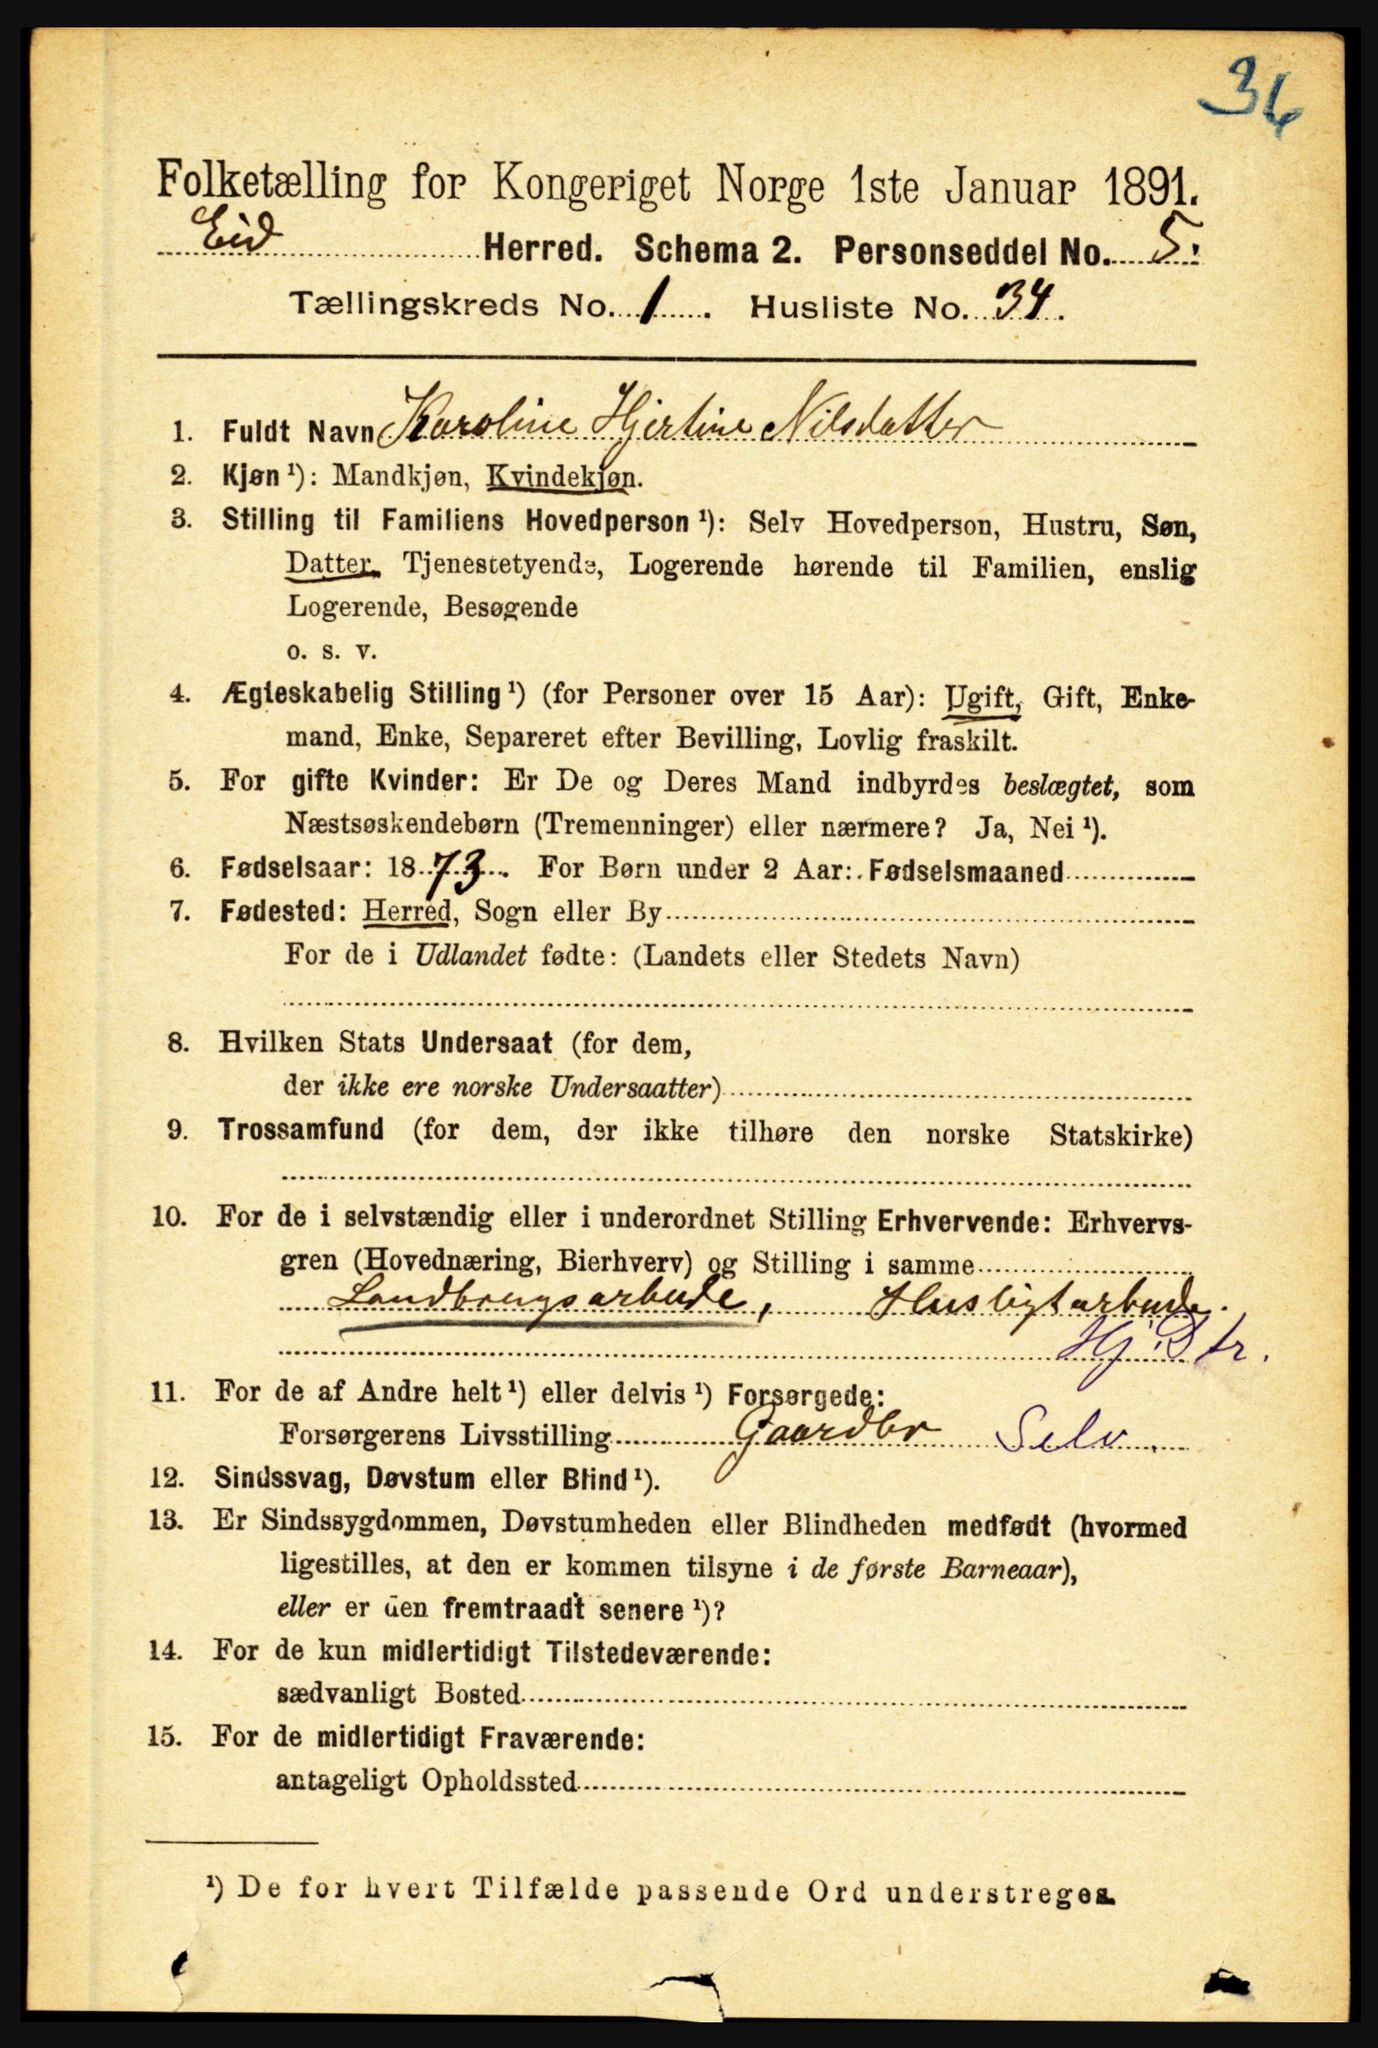 36
Folketælling for Kongeriget Norge 1ste Januar 1891.
Eid Herred. Schema 2. Personseddel No. 5.
Tællingskreds No. 1. Husliste No. 34.
1. Fuldt Navn Karoline Hjertine Nilsdatter
2. Kjøn ¹): Mandkjøn, Kvindekjøn.
3. Stilling til Familiens Hovedperson ¹): Selv Hovedperson, Hustru, Søn,
Datter, Tjenestetyende, Logerende hørende til Familien, enslig
Logerende, Besøgende
o. s. v.
4. Ægteskabelig Stilling ¹) (for Personer over 15 Aar): Ugift, Gift, Enke-
mand, Enke, Separeret efter Bevilling, Lovlig fraskilt.
5. For gifte Kvinder: Er De og Deres Mand indbyrdes beslægtet, som
Næstsøskendebørn (Tremenninger) eller nærmere? Ja, Nei ¹).
6. Fødselsaar: 1873. For Børn under 2 Aar: Fødselsmaaned
7. Fødested: Herred, Sogn eller By
For de i Udlandet fødte: (Landets eller Stedets Navn)
8. Hvilken Stats Undersaat (for dem,
der ikke ere norske Undersaatter)
9. Trossamfund (for dem, der ikke tilhøre den norske Statskirke)
10. For de i selvstændig eller i underordnet Stilling Erhvervende: Erhvervs-
gren (Hovednæring, Bierhverv) og Stilling i samme
Landbrugsarbeide, Husligtarbeide.
Hj. Dtr.
11. For de af Andre helt ¹) eller delvis ¹) Forsørgede:
Forsørgerens Livsstilling Gaardbr Selv.
12. Sindssvag, Døvstum eller Blind ¹).
13. Er Sindssygdommen, Døvstumheden eller Blindheden medfødt (hvormed
ligestilles, at den er kommen tilsyne i de første Barneaar),
eller er den fremtraadt senere ¹)?
14. For de kun midlertidigt Tilstedeværende:
sædvanligt Bosted
15. For de midlertidigt Fraværende:
antageligt Opholdssted
¹) De for hvert Tilfælde passende Ord understreges.